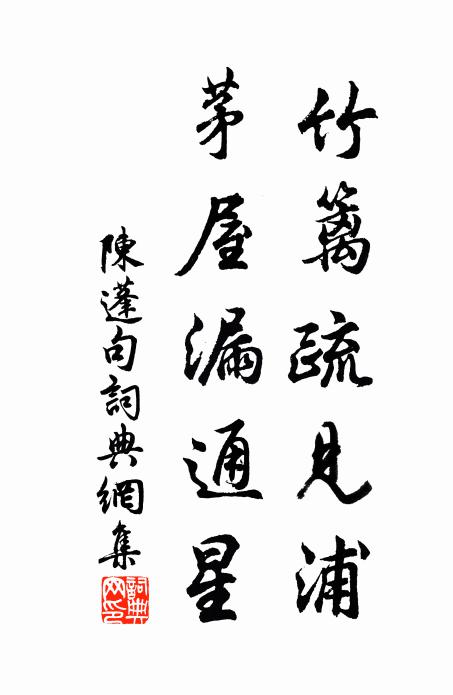 竹籬疏見浦
茅屋漏通星
陳蓬句詞典網集
詞典網印